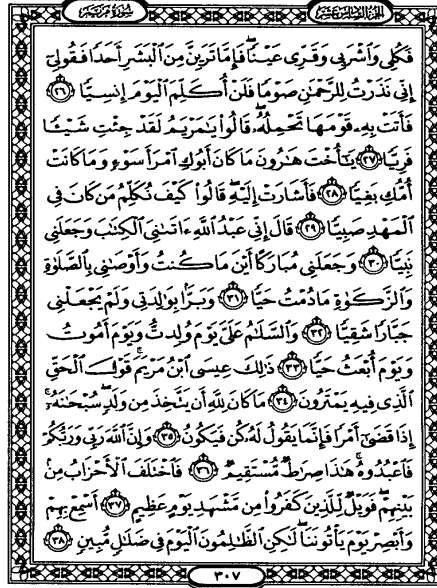 سورة مريم الجزء السادس عشر
فَكُلِى وَٱشْرَبِى وَقَرِّى عَيْنًا ۖ فَإِمَّا تَرَيِنَّ مِنَ ٱلْبَشَرِ أَحَدًا فَقُولِىٓ
إِنِّى نَذَرْتُ لِلرَّحْمَـٰنِ صَوْمًا فَلَنْ أُكَلِّمَ ٱلْيَوْمَ إِنسِيًّا ٢٦
فَأَتَتْ بِهِۦ قَوْمَهَا تَحْمِلُهُۥ ۖ قَالُوا۟ يَـٰمَرْيَمُ لَقَدْ جِئْتِ شَيْـًٔا
فَرِيًّا ٢٧ يَـٰٓأُخْتَ هَـٰرُونَ مَا كَانَ أَبُوكِ ٱمْرَأَ سَوْءٍ وَمَا كَانَتْ
أُمُّكِ بَغِيًّا ٢٨ فَأَشَارَتْ إِلَيْهِ ۖ قَالُوا۟ كَيْفَ نُكَلِّمُ مَن كَانَ فِى
ٱلْمَهْدِ صَبِيًّا ٢٩ قَالَ إِنِّى عَبْدُ ٱللَّهِ ءَاتَىٰنِىَ ٱلْكِتَـٰبَ وَجَعَلَنِى
نَبِيًّا ٣٠ وَجَعَلَنِى مُبَارَكًا أَيْنَ مَا كُنتُ وَأَوْصَـٰنِى بِٱلصَّلَوٰةِ
وَٱلزَّكَوٰةِ مَا دُمْتُ حَيًّا ٣١ وَبَرًّۢا بِوَٰلِدَتِى وَلَمْ يَجْعَلْنِى
جَبَّارًا شَقِيًّا ٣٢ وَٱلسَّلَـٰمُ عَلَىَّ يَوْمَ وُلِدتُّ وَيَوْمَ أَمُوتُ
وَيَوْمَ أُبْعَثُ حَيًّا ٣٣ ذَٰلِكَ عِيسَى ٱبْنُ مَرْيَمَ ۚ قَوْلَ ٱلْحَقِّ
ٱلَّذِى فِيهِ يَمْتَرُونَ ٣٤ مَا كَانَ لِلَّهِ أَن يَتَّخِذَ مِن وَلَدٍ ۖ سُبْحَـٰنَهُۥٓ ۚ
إِذَا قَضَىٰٓ أَمْرًا فَإِنَّمَا يَقُولُ لَهُۥ كُن فَيَكُونُ ٣٥ وَإِنَّ ٱللَّهَ رَبِّى وَرَبُّكُمْ
فَٱعْبُدُوهُ ۚ هَـٰذَا صِرَٰطٌ مُّسْتَقِيمٌ ٣٦ فَٱخْتَلَفَ ٱلْأَحْزَابُ مِنۢ
بَيْنِهِمْ ۖ فَوَيْلٌ لِّلَّذِينَ كَفَرُوا۟ مِن مَّشْهَدِ يَوْمٍ عَظِيمٍ ٣٧ أَسْمِعْ بِهِمْ
وَأَبْصِرْ يَوْمَ يَأْتُونَنَا ۖ لَـٰكِنِ ٱلظَّـٰلِمُونَ ٱلْيَوْمَ فِى ضَلَـٰلٍ مُّبِينٍ ٣٨
٣٠٧